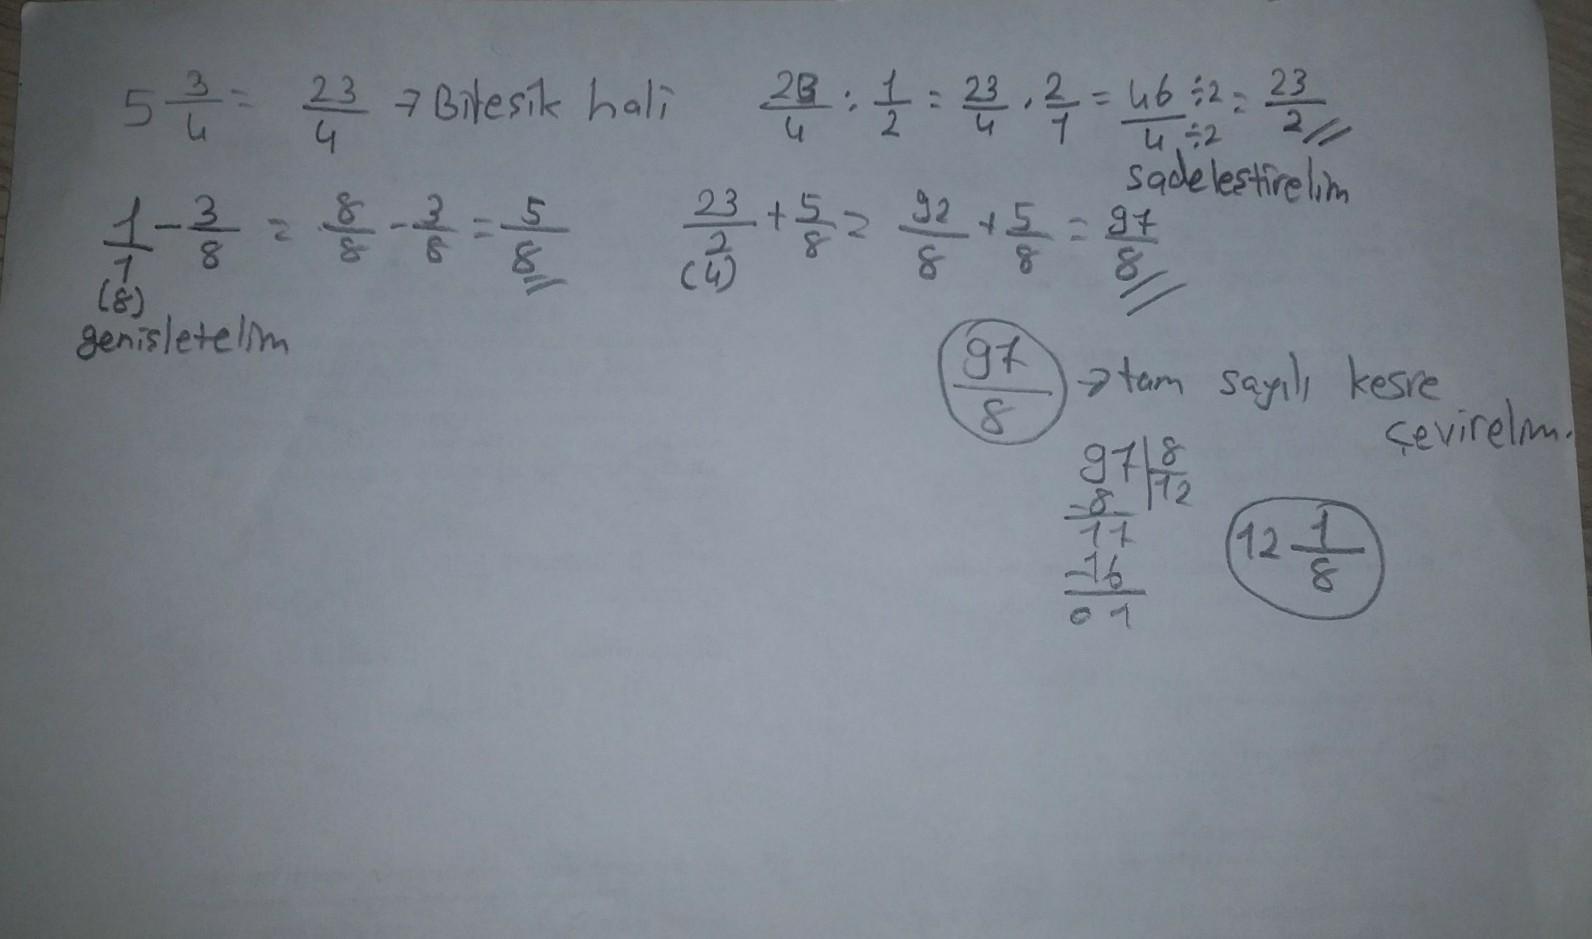 5 3/4 = 23/4 → Bileşik hali
23/4 : 1/2 = 23/4 . 2/1 = 46÷2/4÷2 = 23/2 //
sadeleştirelim
1/1 - 3/8 = 8/8 - 3/8 = 5/8 //
(8)
genişletelim
23/2 + 5/8 = 92/8 + 5/8 = 97/8 //
(4)
97/8 → tam sayılı kesre
çevirelim.
97 | 8
-8 | 12
17
-16
01
12 1/8